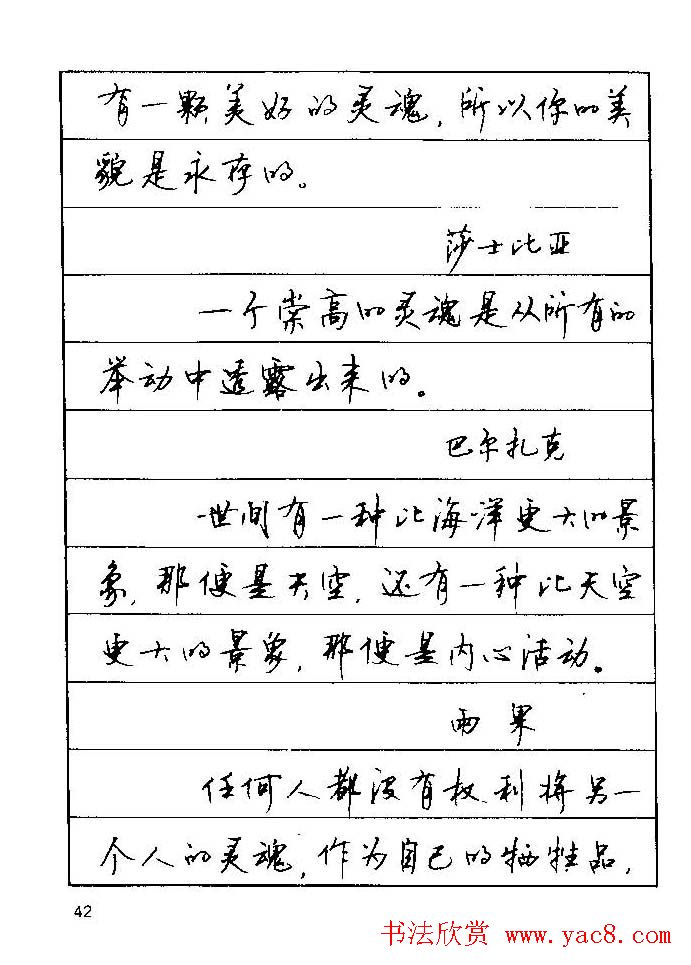 有一颗美好的灵魂，所以你的美
貌是永存的。
莎士比亚
一个崇高的灵魂是从所有的
举动中透露出来的。
巴尔扎克
世间有一种比海洋更大的景
象，那便是天空，还有一种比天空
更大的景象，那便是内心活动。
雨果
任何人都没有权利将另一
个人的灵魂，作为自己的牺牲品，
42
书法欣赏 www.yac8.com